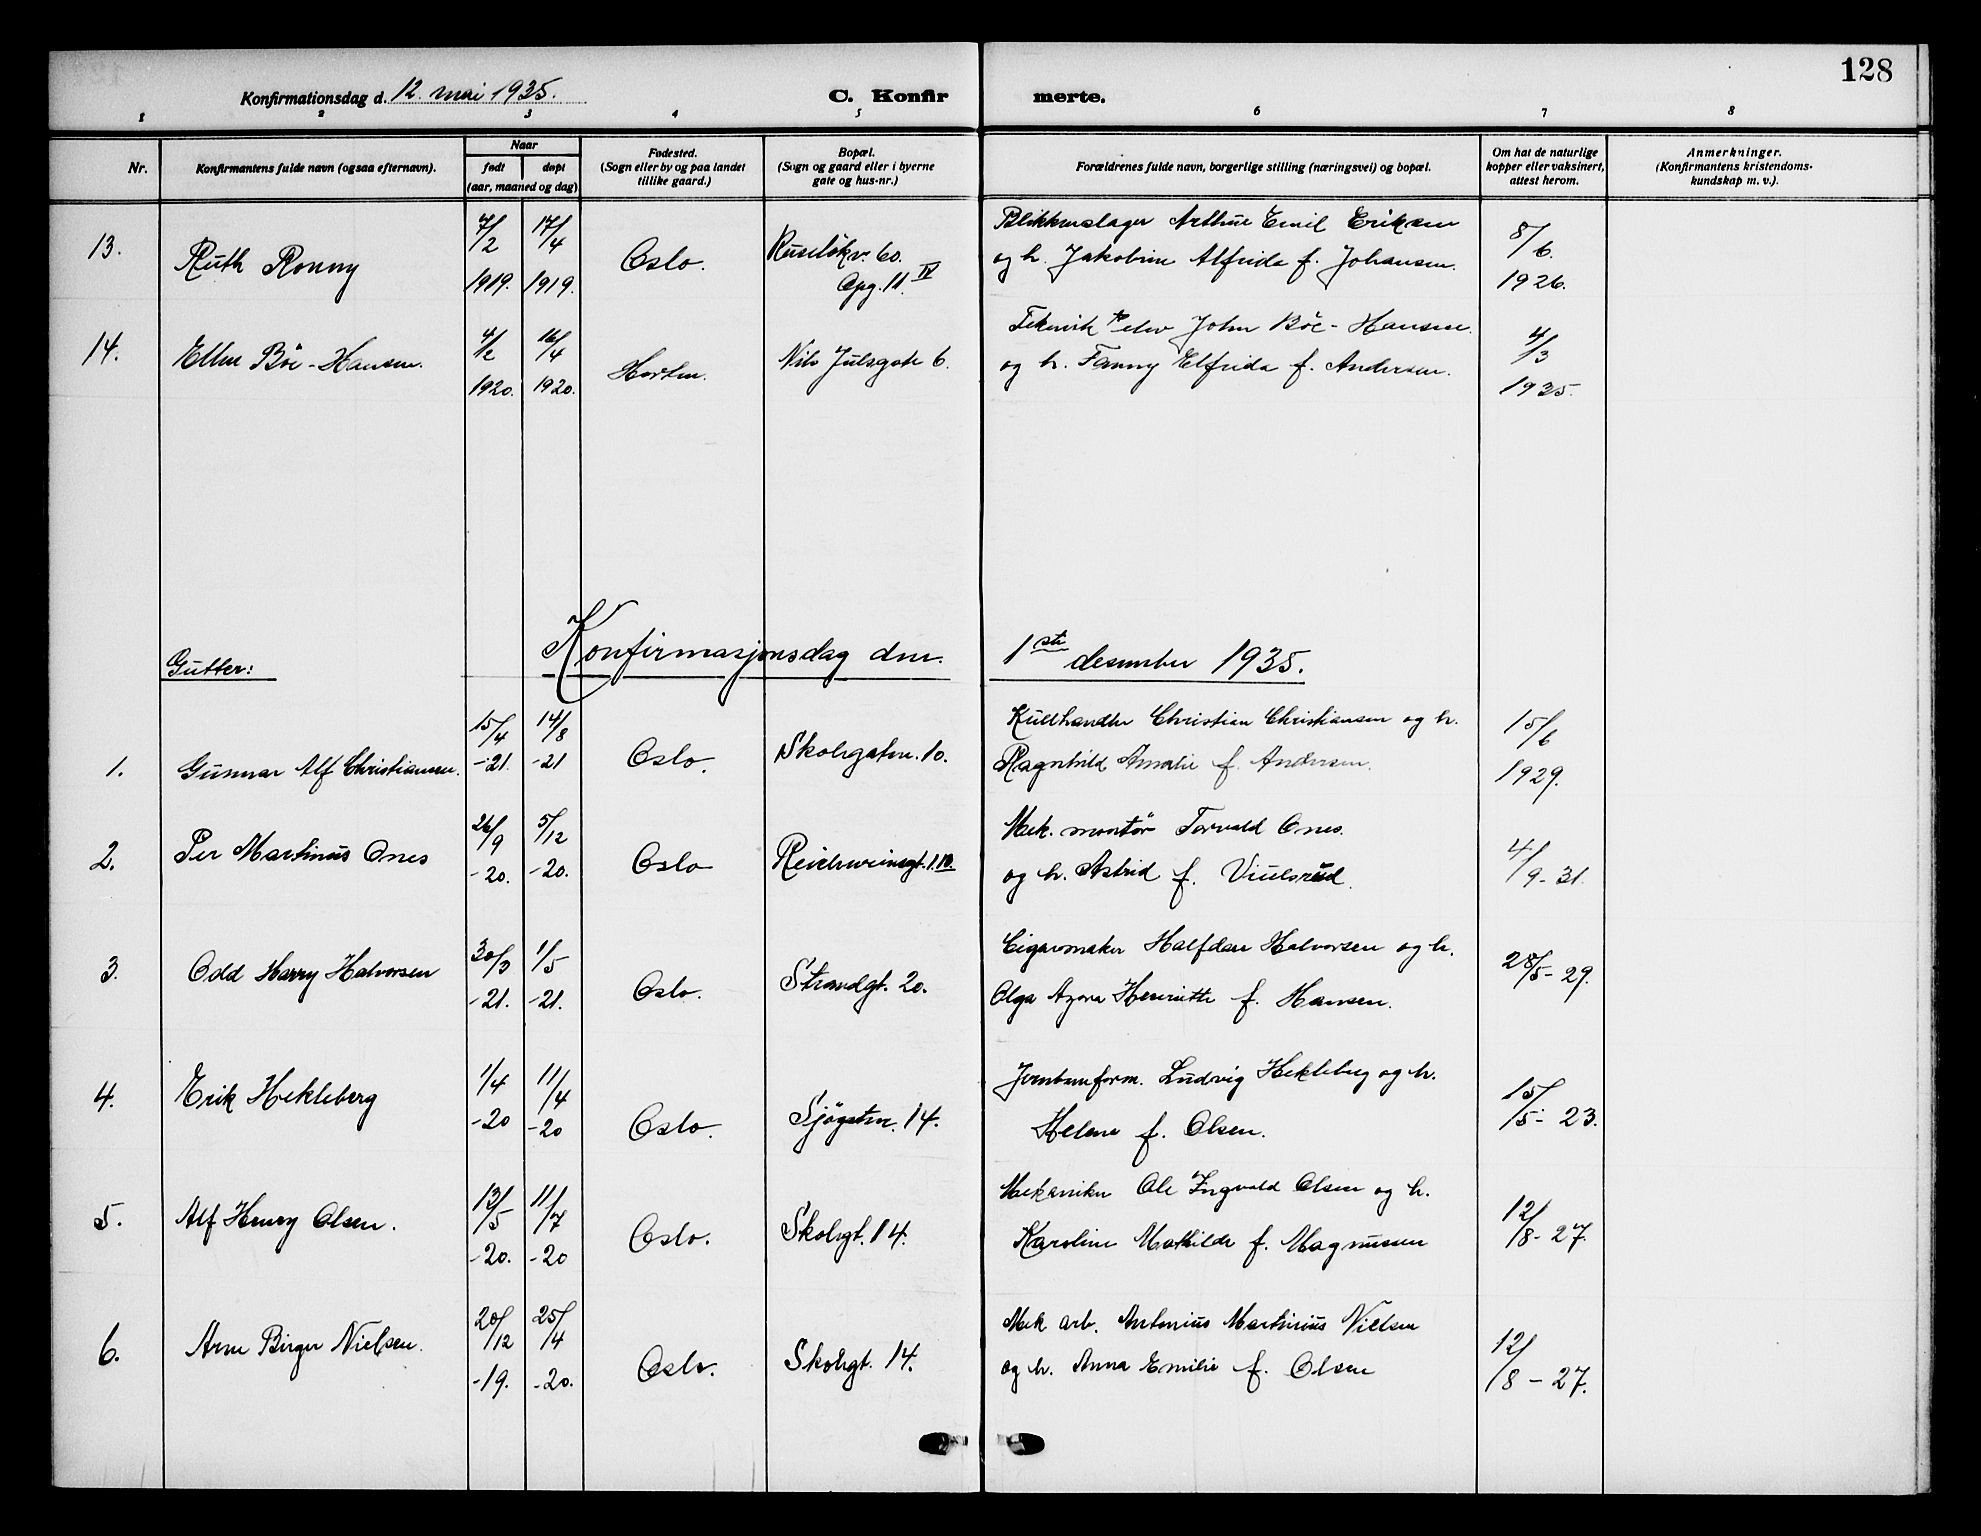 128
Konfirmationsdag d. 12. mai 1935.
C. Konfir merte.
1 2 3 4 5 6 7 8
Nr.
Konfirmantens fulde navn (ogsaa efternavn).
Naar
født døpt
(aar, maaned og dag)
Fødested.
(Sogn eller by og paa landet
tillike gaard.)
Bopæl.
(Sogn og gaard eller i byerne
gate og hus-nr.)
Forældrenes fulde navn, borgerlige stilling (næringsvei) og bopæl.
Om hat de naturlige
kopper eller vaksinert,
attest herom.
Anmerkninger.
(Konfirmantens kristendoms-
kundskap m. v.).
13.
Ruth Ronny
7/2
1919.
17/4
1919.
Oslo.
Ruselökv. 60.
Opg. 11. IV
Blikkenslager Arthur Emil Eriksen
og h. Jakobine Alfrida f. Johansen.
8/6.
1926.
14.
Ellen Böe-Hansen.
4/2
1920.
16/4
1920.
Horten.
Nils Julsgate 6.
John Böe-Hansen.
og h. Fanny Elfrida f. Andersen.
4/3
1935.
Gutter:
Konfirmasjonsdag den 1ste desember 1935.
1.
Gunnar Alf Christiansen.
15/4
-21.
14/8
-21
Oslo.
Skolegaten. 10.
Kullhandler Christian Christiansen og h.
Ragnhild Amalie f. Andersen.
15/6
1929.
2.
Per Martinus Ones
26/9
-20.
5/12
-20.
Oslo
Reichweinsgt. 1.
Mek. montör Torvald Ones.
og h. Astrid f. Viulsrud.
4/9-31.
3.
Odd Harry Halvorsen
30/3
-21.
1/5
-21.
Oslo.
Strandgt. 20.
Cigarmaker Halfdan Halvorsen og h.
Olga Agora Henriette f. Hansen.
28/5-29.
4.
Erik Hekleberg
1/4
-20
11/4
-20
Oslo.
Sjögaten. 14.
Jernbaneform. Ludvig Hekleberg og h.
Helene f. Olsen.
15/5-23.
5.
Alf Henry Olsen.
13/5
-20.
11/7
-20
Oslo.
Skolegt. 14.
Mekaniker Ole Ingvald Olsen og h.
Karoline Mathilde f. Magnussen
12/8-27.
6.
Arne Birger Nielsen.
20/12
-19.
25/4
-20.
Oslo.
Skolegt. 14.
Mek arb. Antonius Martinius Nielsen
og h. Anna Emilie f. Olsen
12/8-27.